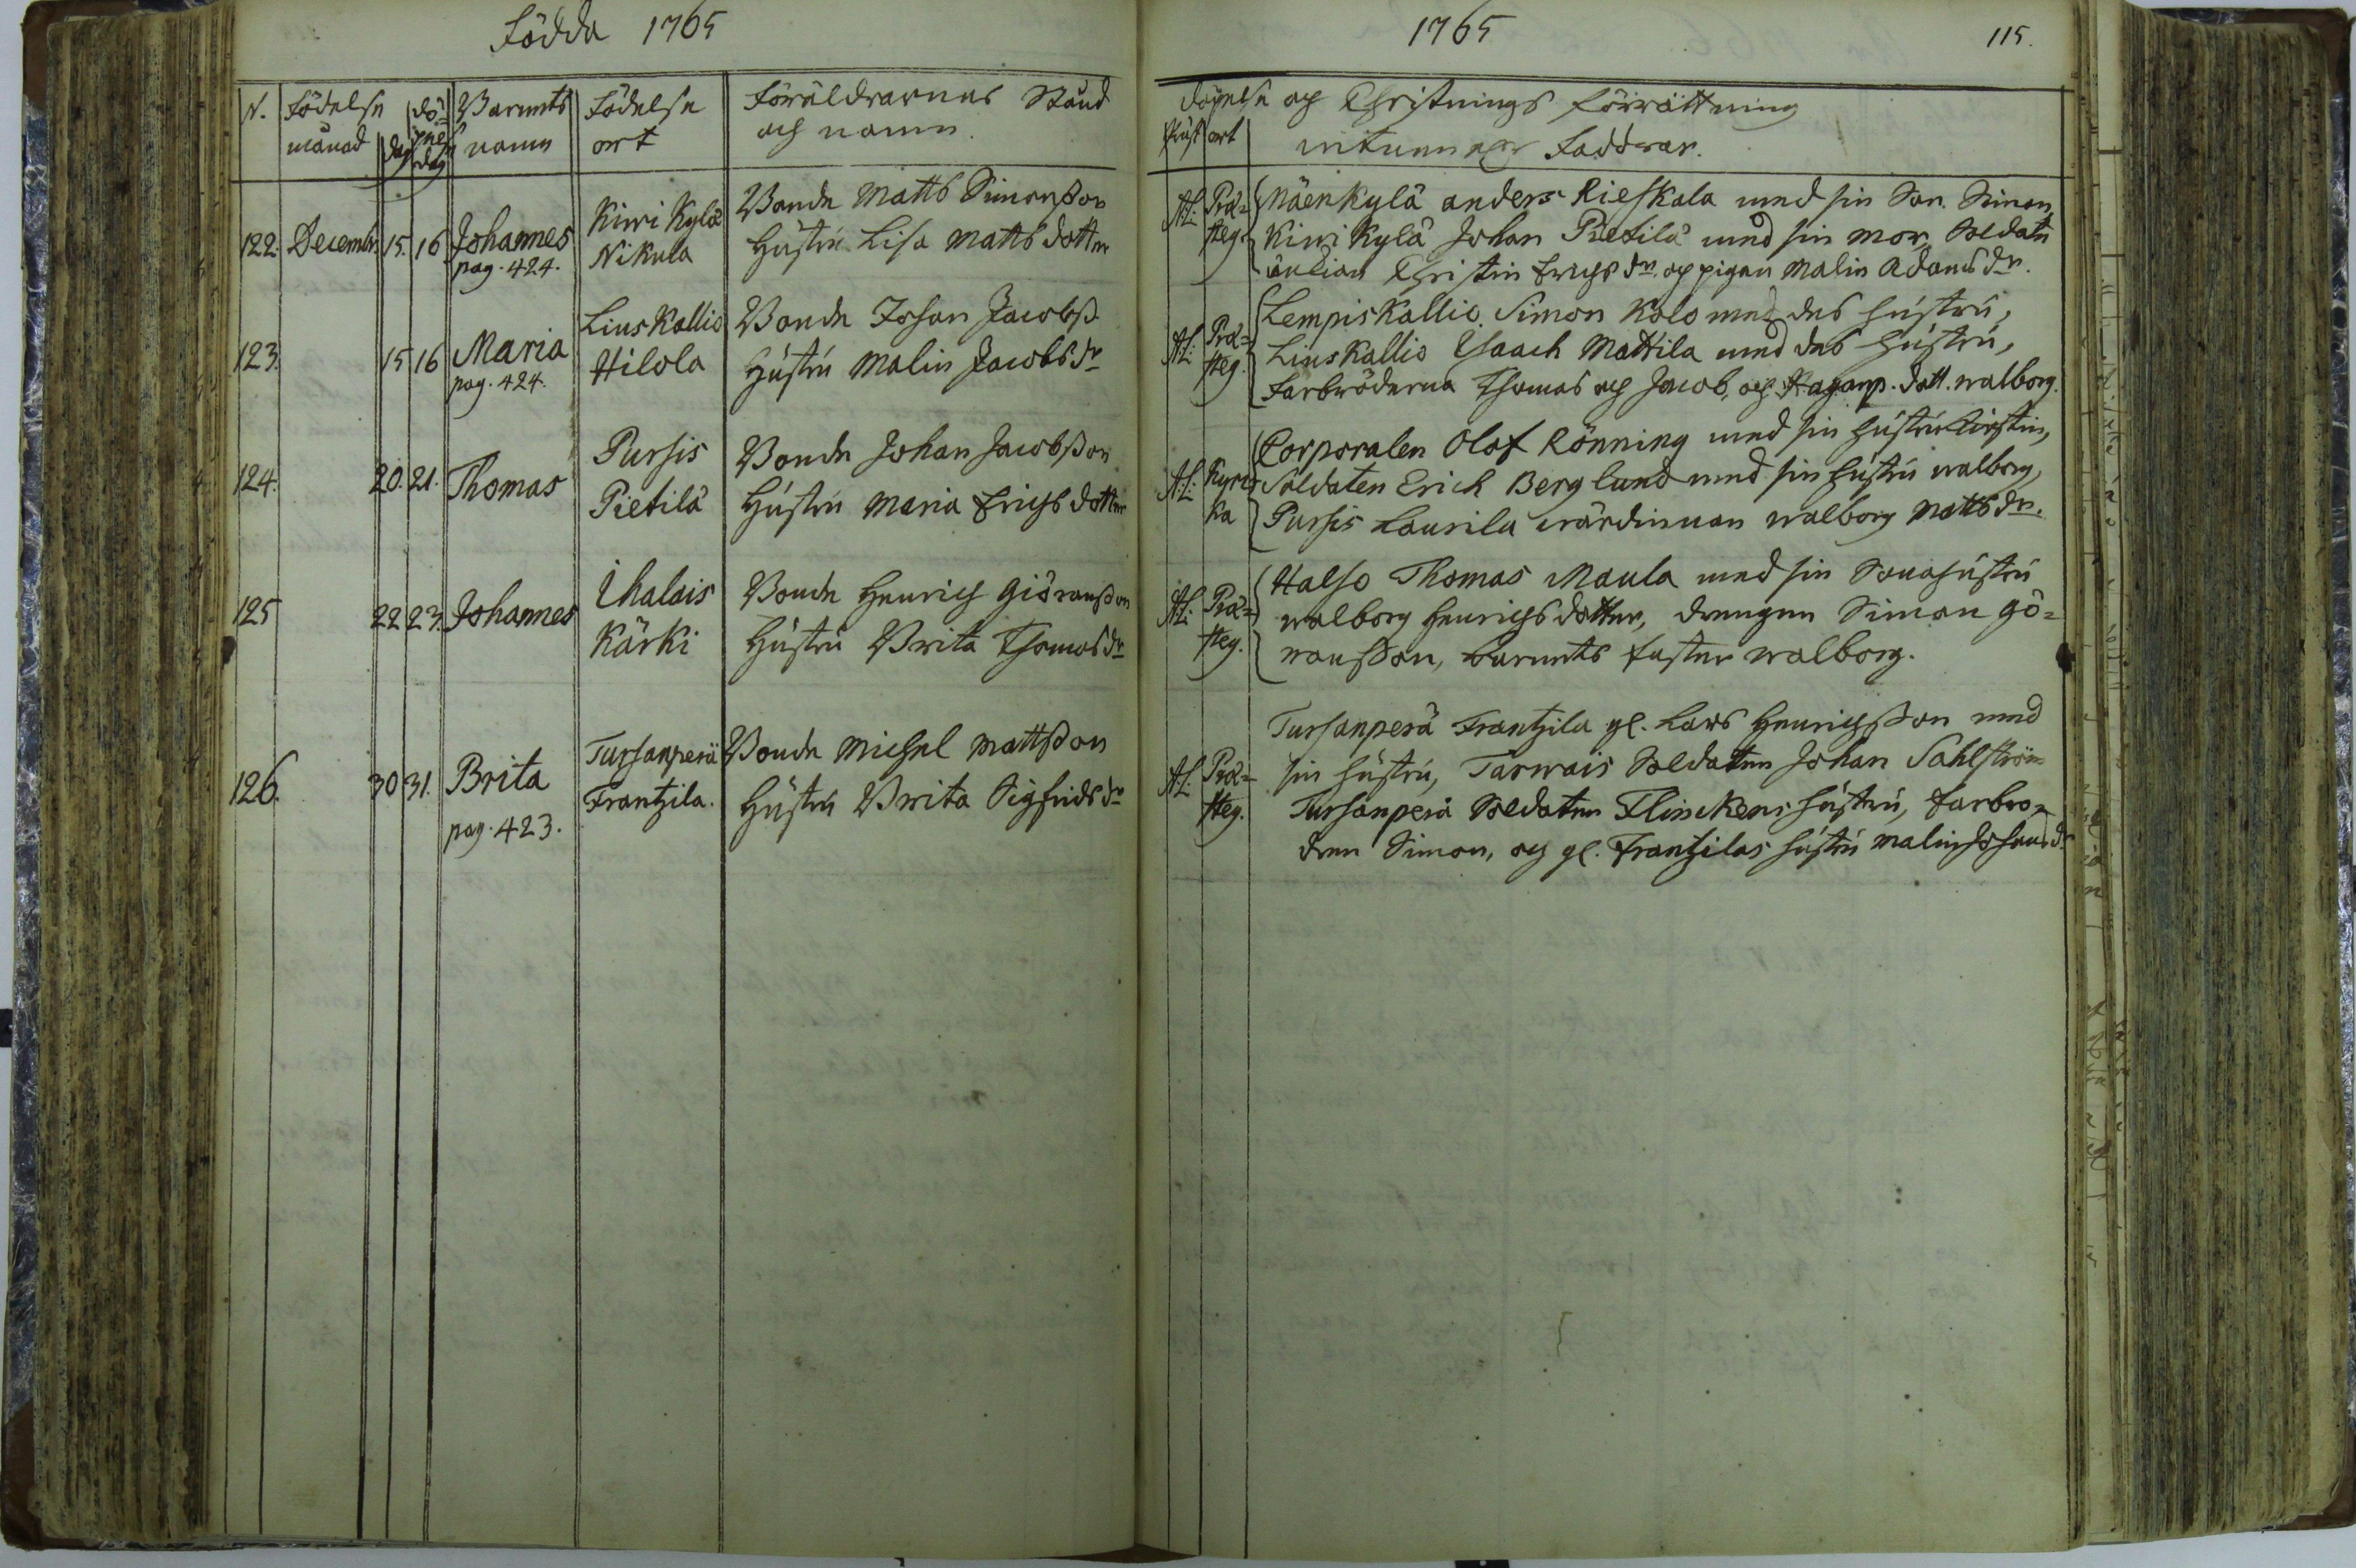 Födda 1765
N. Födelse månad dag Döpelse dag Barnets namn Födelse ort Föräldrarnas Stånd och namn.
122. Decemb. 15. 16 Johannes pag. 424.
Kiwi Kylä Nikula
Bonde Matts Simonßon
Hustru Lisa Matts dotter
123. 15 16 Maria pag. 424.
Lius Kallio Hilola
Bonde Johan Jacobß.
Hustru Malin Jacobs dr
124. 20. 21. Thomas
Pursis Pietilä
Bonde Johan Jacobßon
Hustru Maria Erichs dotter
125 22 23. Johannes
Ihalais Kärki
Bonde Henrich Giöranßon
Hustru Brita Thomas dr
126. 30 31. Brita pag. 423.
Tursanperä Frantzila.
Bonde Michel Mattßon
Hustru Brita Sigfrids dr
1765
115.
Döpelse och Christnings förrättning
Präst ort
wittnen eller Faddrar.
A.L. Prästeg.
Mäenkylä Anders Rieskala med sin Son Simon,
Kiwi Kylä Johan Pietilä med sin mor, Soldat
änckian Christin Erichs dr, och pigan Malin Adams dr.
A.L. Prästeg.
Lempis Kallio Simon Kolo med des hustru,
Lius Kallio Isaach Mattila med des hustru,
Farbröderna Thomas och Jacob, och dott. walborg.
A.L. Kyrcka
Corporalen Olof Rönning med sin hustru Kirstin,
Soldaten Erich Berglund med sin hustru walborg,
Pursis Laurila wärdinnan walborg Matts dr.
A.L. Prästeg.
Halso Thomas Maula med sin Sonahustru
walborg Henrichs dotter, drengen Simon Gö=
ranßon, barnets faster walborg.
A.L. Prästeg.
Tursanperä Frantzila gl. Lars Henrichßon med
sin hustru, Tarwais Soldaten Johan Sahlström
Tursanperä Soldaten Flinckens hustru, farbro=
dren Simon, och gl. Frantzilas hustru Malin Johans dr